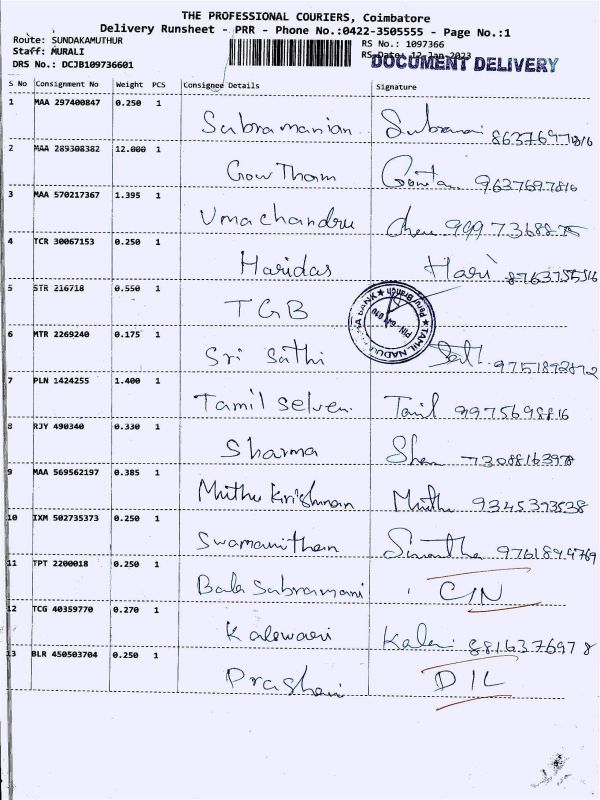 THE PROFESSIONAL COURIERS, Coimbatore
Delivery Runsheet - PRR - Phone No.:0422-3505555 - Page No.:1
Route: SUNDAKAMUTHUR
RS No.: 1097366
Staff: MURALI
RS Date: 12-Jan-2023
DOCUMENT DELIVERY
DRS No.: DCJB109736601
S No Consignment No Weight PCS Consignee Details Signature
1 MAA 297400847 0.250 1
Subramanian
2 MAA 289308382 12.000 1
Gow Tham 9637697816
3 MAA 570217367 1.395 1
Umachandru
4 TCR 30067153 0.250 1
Haridas Hari
5 STR 216718 0.550 1
TGB
TAMIL NADU
6 MTR 2269240 0.175 1
Sri Sathi
7 PLN 1424255 1.400 1
Tamil Selven. Tamil 9975698816
8 RJY 490340 0.330 1
Sharma
9 MAA 569562197 0.385 1
Muthu Krishnan Muthu 9345373538
10 IXM 502735373 0.250 1
Swamanithan
11 TPT 2200018 0.250 1
Bala Subramani C/N
12 TCG 40359770 0.270 1
Kalewani Kalai 8816376978
13 BLR 450503704 0.250 1
D/L